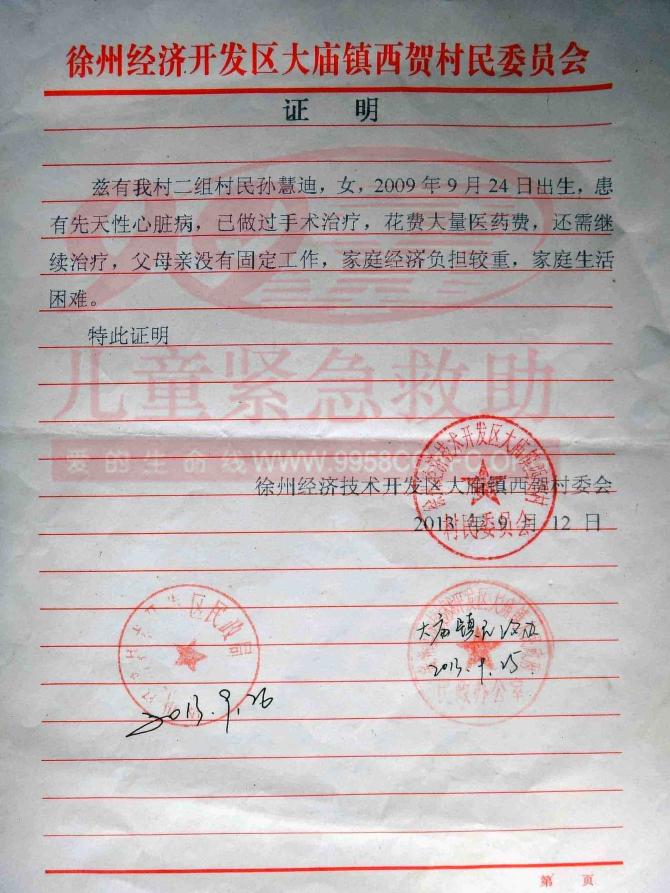 徐州经济开发区大庙镇西贺村民委员会
证 明
兹有我村二组村民孙慧迪，女，2009年9月24日出生，患
有先天性心脏病，已做过手术治疗，花费大量医药费，还需继
续治疗，父母亲没有固定工作，家庭经济负担较重，家庭生活
困难。
特此证明
儿童紧急救助
爱的生命线WWW.9958
徐州经济技术开发区大庙镇西贺村委会
2013年9月12日
村民委员会
区民政局
大庙镇
2013.9.25
民政办公室
2013.9.26
第 页